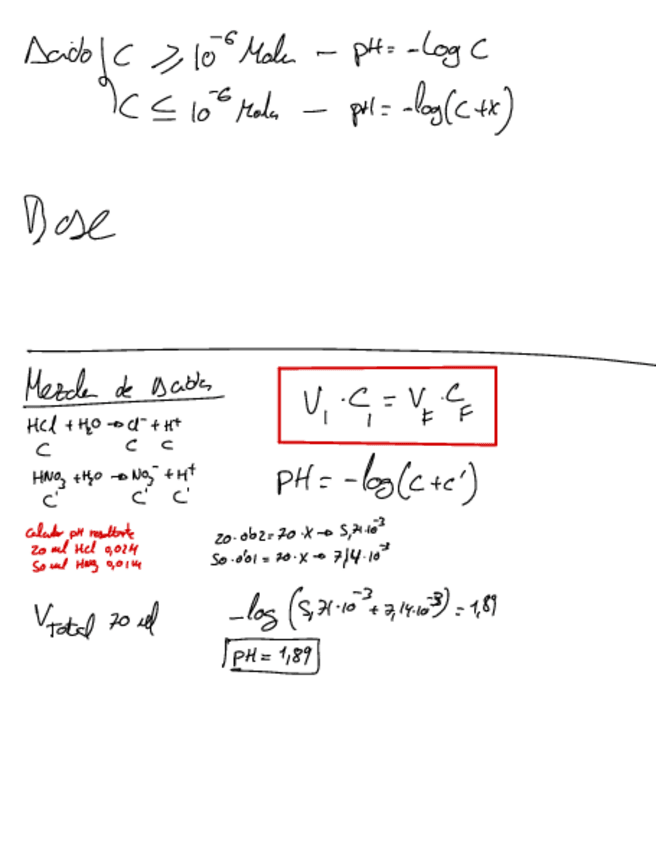 Acido C ⩾ 10⁻⁶ Molar – pH = -Log C
C ≤ 10⁻⁶ Molar – pH = -log(C+x)
Base
Mezcla de Acidos
V_I · C_I = V_F · C_F
HCl + H₂O → Cl⁻ + H⁺
C C C
HNO₃ + H₂O → NO₃⁻ + H⁺
C' C' C'
PH = -log(C+C')
Calcular pH resultante
20 ml HCl 0,02M
50 ml HNO₃ 0,01M
20·0'02 = 70·X → 5,71·10⁻³
50·0'01 = 70·X → 7,14·10⁻³
V_Total 70 ml
-log (5,71·10⁻³ + 7,14·10⁻³) = 1,89
PH = 1,89